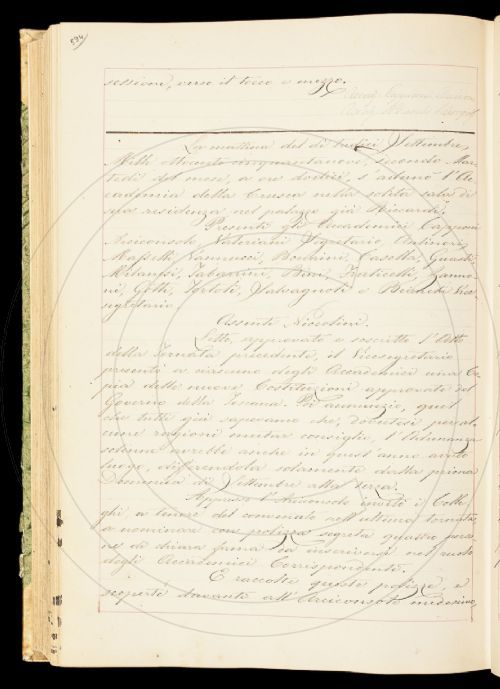 594
sessione, verso il tocco e mezzo.
La mattina del dì tredici Settembre,
Mille ottocento cinquantanove, secondo Mar-
tedì del mese, a ore dodici, s'adunò l'Ac-
cademia della Crusca nella solita sala di
sua residenza nel palazzo già Riccardi.
Presenti gli Accademici Capponi
Arciconsolo, Valeriani Segretario, Antinori,
Masselli, Vannucci, Casella, Guasti,
Milanesi, Tabarrini, Bini, Zanno-
ni, Gelli, Tortoli, Salvagnoli e Bianchi Vice-
segretario.
Assente Niccolini.
Letto, approvato e soscritto l'Atto
della Tornata precedente, il Vicesegretario
presentò a ciascuno degli Accademici una Co-
pia delle nuove Costituzioni approvate dal
Governo della Toscana. Poi annunziò, quel
che tutti già sapevano che, dovutosi per al-
cune ragioni mutar consiglio, l'Adunanza
solenne avrebbe anche in quest'anno avuto
luogo, differendola solamente dalla prima
Domenica di Settembre alla terza.
Appresso l'Arciconsolo invitò i Colle-
ghi, a tenore del convenuto nell'ultima tornata,
a nominare con polizza segreta quattro perso-
ne di chiara fama da inscriversi nel ruolo
degli Accademici Corrispondenti.
E raccolte queste polizze, e
scoperte davanti all'Arciconsolo medesimo,